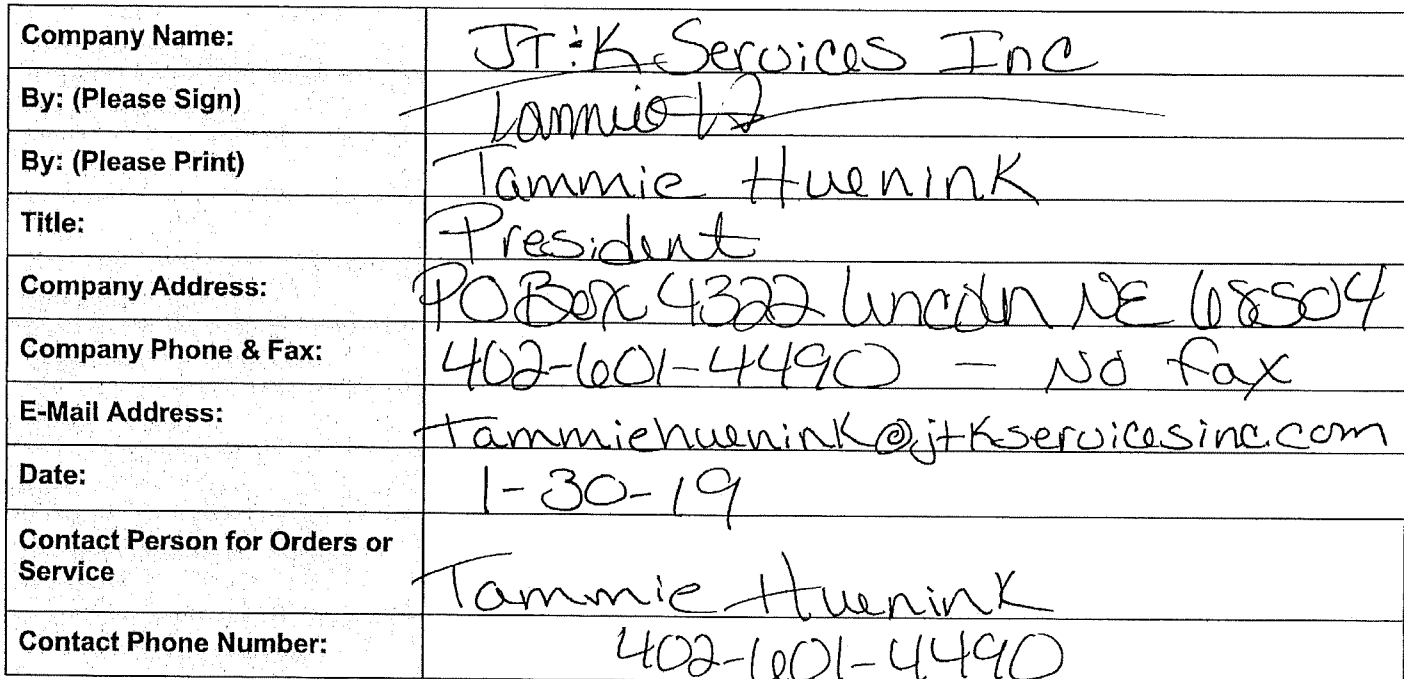 Company Name: JT&K Services Inc
By: (Please Sign) Tammie H
By: (Please Print) Tammie Huenink
Title: President
Company Address: PO Box 4322 Lincoln NE 68504
Company Phone & Fax: 402-601-4490 - No fax
E-Mail Address: tammiehuenink@jtkservicesinc.com
Date: 1-30-19
Contact Person for Orders or
Service Tammie Huenink
Contact Phone Number: 402-601-4490